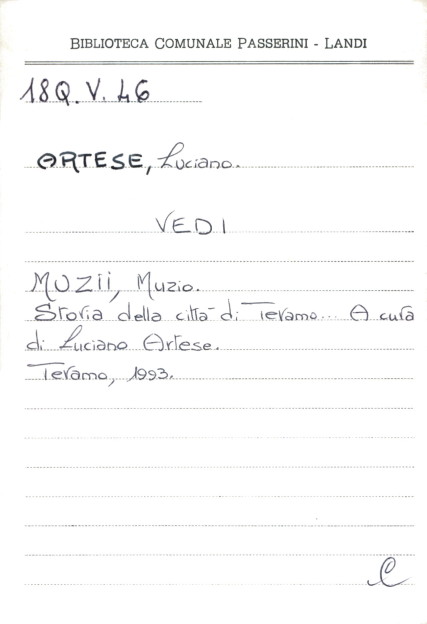 BIBLIOTECA COMUNALE PASSERINI - LANDI
18Q.V.46
ARTESE, Luciano.
VEDI
MUZII, Muzio.
Storia della città di Teramo... A cura
di Luciano Artese.
Teramo, 1993.